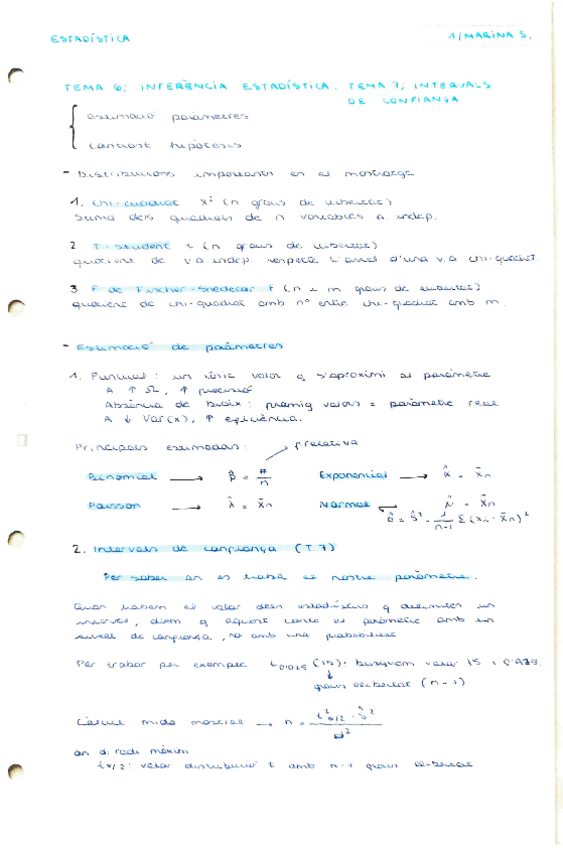 ESTADÍSTICA
1/MARINA S.
TEMA 6: INFERÈNCIA ESTADÍSTICA. TEMA 7: INTERVALS
DE CONFIANÇA
Estimació paràmetres
Contrast hipòtesis
- Distribucions importants en el mostratge
1. Chi-quadrat x² (n graus de llibertat)
Suma dels quadrats de n variables a. indep.
2 T-Student t (n graus de llibertat)
quocient de v.a indep. respecte l'arrel d'una v.a chi-quadrat.
3. F de Fischer-Snedecor F (n i m graus de llibertat)
quocient de chi-quadrat amb n° entre chi-quadrat amb m.
- Estimació de paràmetres
1. Puntual: un únic valor q s'aproximi al paràmetre
A ↑ Ω, ↑ precisió
Absència de biaix: promig valors = paràmetre real
A ↓ Var(x), ↑ eficiència.
Principals estimadors: → f relativa
Binomial → p̂ = #/n Exponencial → λ̂ = x̄n
Poisson → λ̂ = x̄n Normal → μ̂ = x̄n
σ̂ = Ŝ² = 1/(n-1) Σ(xi - x̄n)²
2. Intervals de confiança (T.7)
Per saber on es troba el nostre paràmetre.
Quan trobem el valor dels estadístics q delimiten un
interval, diem q aquest conté el paràmetre amb un
nivell de confiança, no amb una probabilitat
Per trobar per exemple t0.025 (15): busquem valor 15 i 0.975.
↓
graus llibertat (n-1)
Càlcul mida mostral → n = t²α/2 · Ŝ² / d²
on d: radi màxim
tα/2: valor distribució t amb n-1 graus llibertat